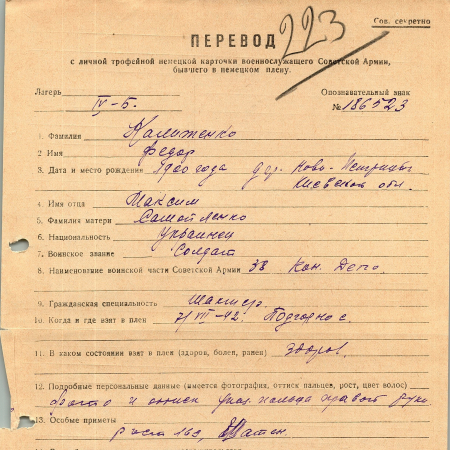 223
Сов. секретно
ПЕРЕВОД
с личной трофейной немецкой карточки военнослужащего Советской Армии,
бывшего в немецком плену.
Лагерь IV-Б.
Опознавательный знак
№ 186523
1. Фамилия Калиженко
2 Имя Федор
3. Дата и место рождения 1900 года дер. Ново-Петривцы
Киевской обл.
4. Имя отца Максим
5. Фамилия матери Самойленко
6. Национальность Украинец
7. Воинское звание Солдат
8. Наименование воинской части Советской Армии 38 Кон. Депо.
9. Гражданская специальность Шахтер.
10. Когда и где взят в плен 7/VII-42. Подгорное.
11. В каком состоянии взят в плен (здоров, болен, ранен) здоров.
12. Подробные персональные данные (имеется фотография, оттиск пальцев, рост, цвет волос)
фото и оттиск указ. пальца правой руки
13. Особые приметы
рост 169,